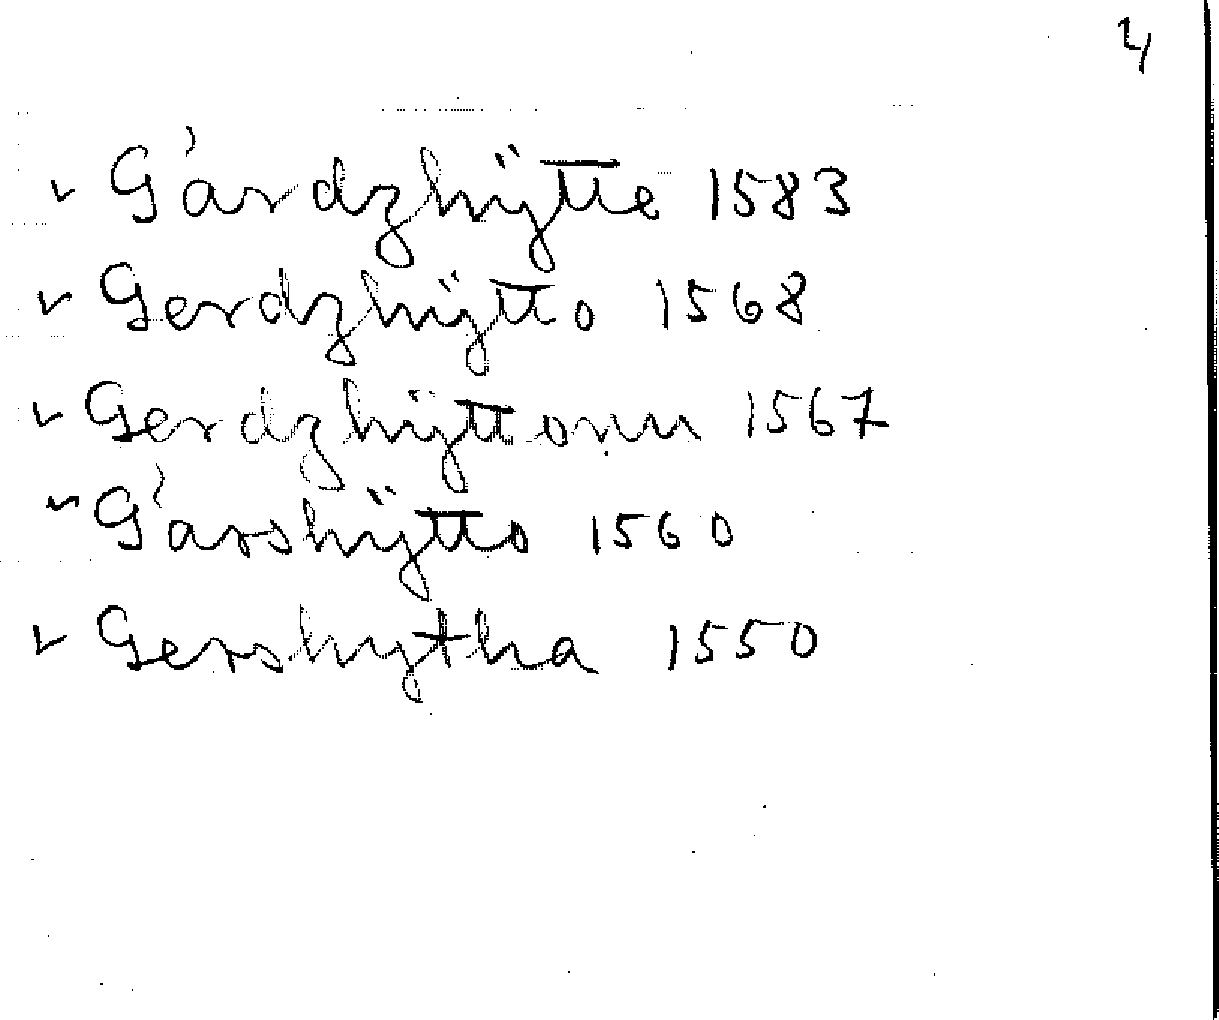 4
✓ Gårdzhÿtte 1583
✓ Gerdzhÿtto 1568
✓ Gerdzhÿttonn 1567
✓ Gårshÿtto 1560
✓ Gershytha 1550